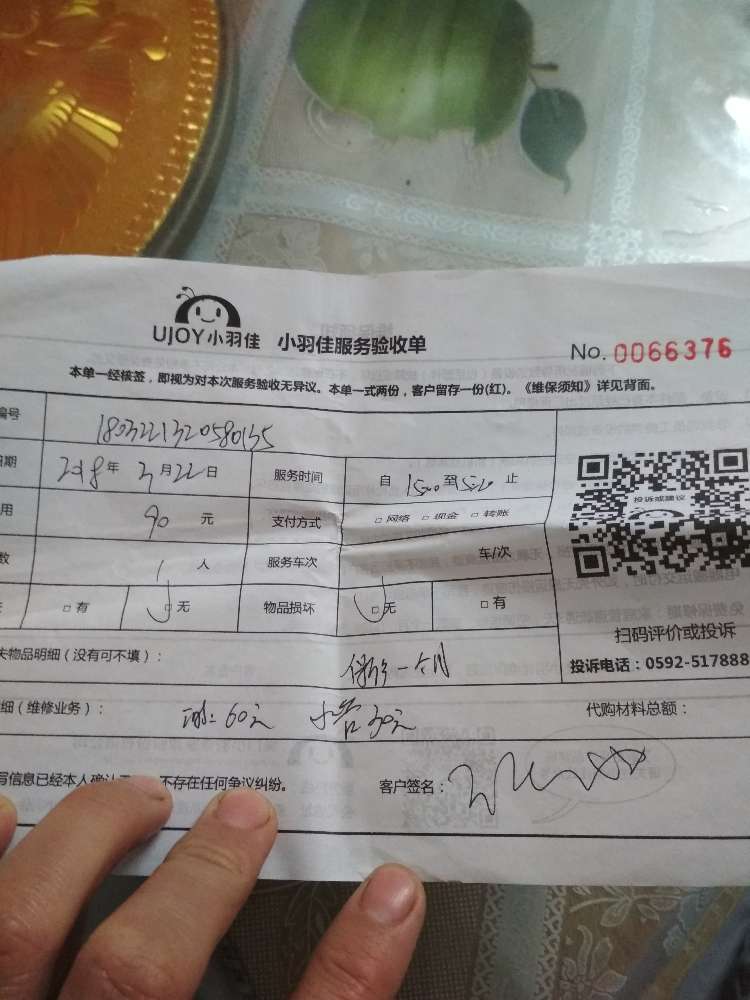 UJOY小羽佳 小羽佳服务验收单
No. 0066376
本单一经核签，即视为对本次服务验收无异议。本单一式两份，客户留存一份(红)。《维保须知》详见背面。
编号 1803221320580135
日期 2018年3月22日 服务时间 自 1500 至 1520 止
用 90 元 支付方式 □ 网络 □ 现金 □ 转账
投诉或建议
数 1 人 服务车次 车/次
□ 有 □ 无 物品损坏 □ 无 □ 有
扫码评价或投诉
失物品明细（没有可不填）： 保修一个月
投诉电话：0592-517888
细（维修业务）： 60元 水管30元 代购材料总额：
写信息已经本人确认 不存在任何争议纠纷。 客户签名：